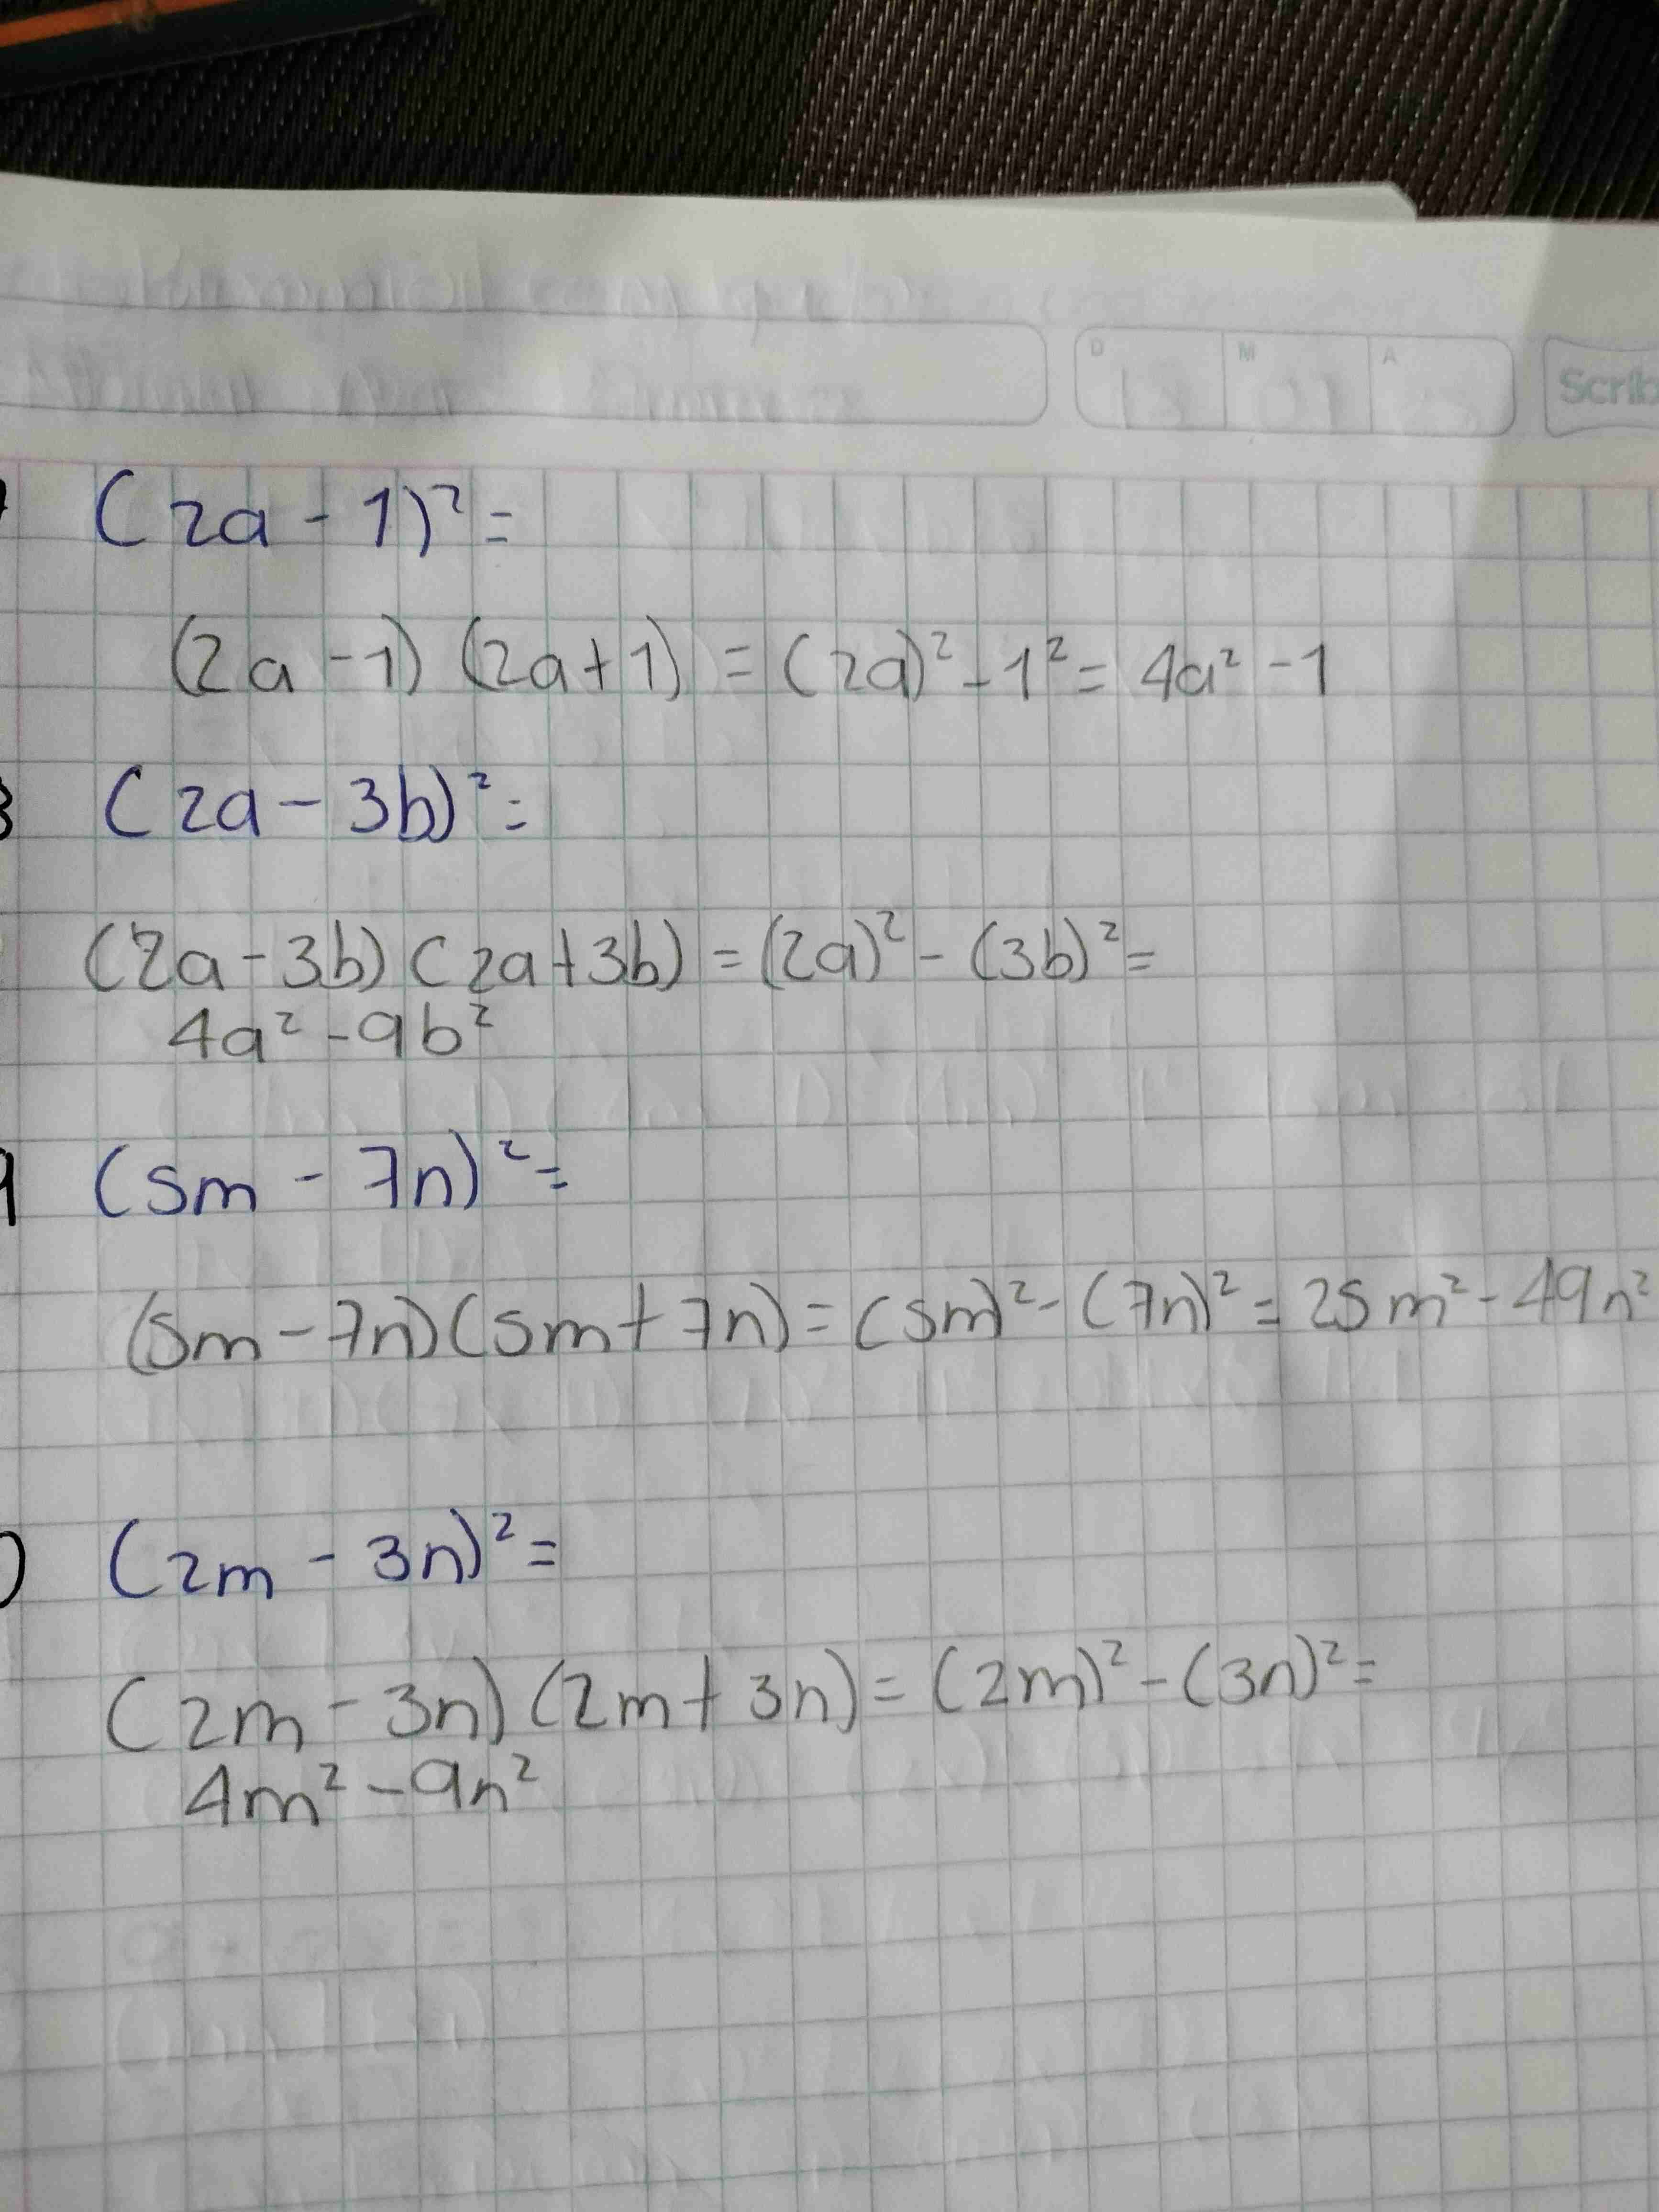 D M A
Scrib
(2a - 1)² =
(2a - 1) (2a + 1) = (2a)² - 1² = 4a² - 1
(2a - 3b)² =
(2a - 3b) (2a + 3b) = (2a)² - (3b)² =
4a² - 9b²
9 (5m - 7n)² =
(5m - 7n) (5m + 7n) = (5m)² - (7n)² = 25m² - 49n²
(2m - 3n)² =
(2m - 3n) (2m + 3n) = (2m)² - (3n)² =
4m² - 9n²